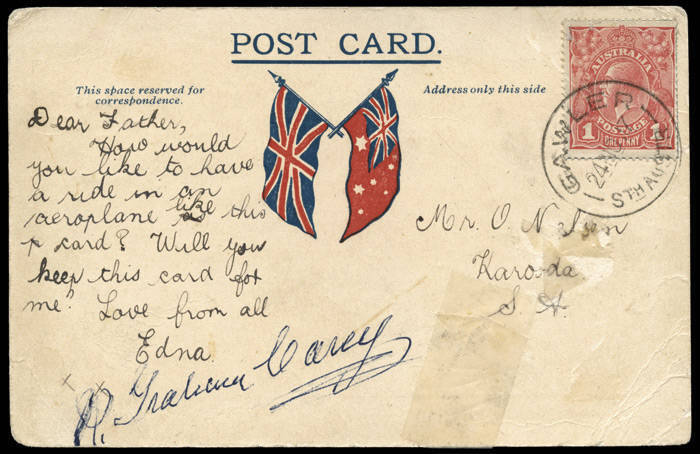 POST CARD.
This space reserved for
correspondence.
Address only this side
Dear Father,
How would
you like to have
a ride in an
aeroplane like this
p card? Will you
keep this card for
me? Love from all
Edna
R. Graham Carey
Mr. O. Nelson
Karoonda
S. A.
AUSTRALIA
POSTAGE
1 ONE PENNY 1
GAWLER
24
STH AUST